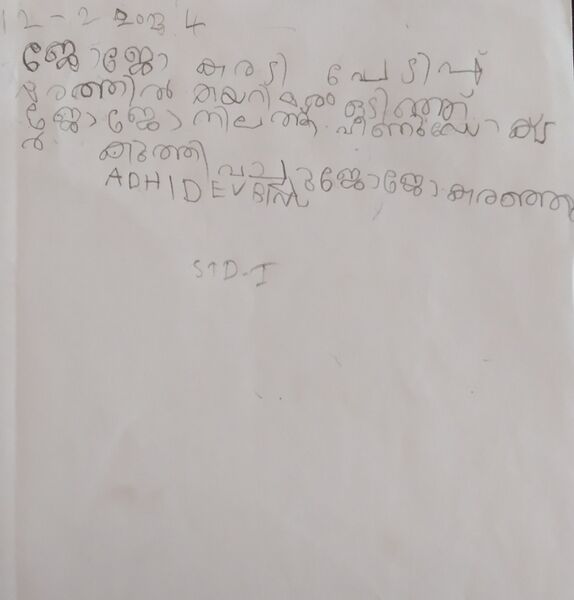 12-2 2024
ജോജോ കരടി പേടിച്ച്
മരത്തിൽ കയറി മരം ഒടിഞ്ഞ്
ജോജോ നിലത്ത് വീണു
കുത്തി ജോജോ കരഞ്ഞു
ADHIDEV BINU
STD-I